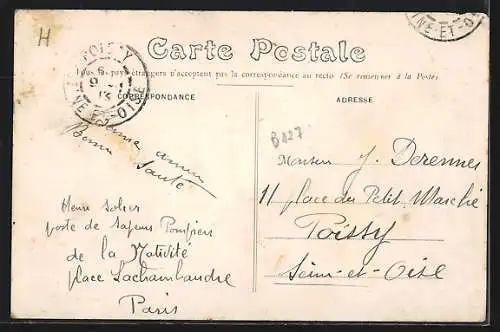 H
POISSY
9
13
SEINE-ET-OISE
NE-ET-O
Carte Postale
Tous les pays étrangers n'acceptent pas la correspondance au recto (Se renseigner à la Poste)
CORRESPONDANCE
ADRESSE
B427
Bonne
Santé
Monsieur J. Derennes
11 place du Petit Marché
Poissy
Seine-et-Oise
Henri
poste de Sapeurs Pompiers
de la Nativité
place Lachambeaudie
Paris